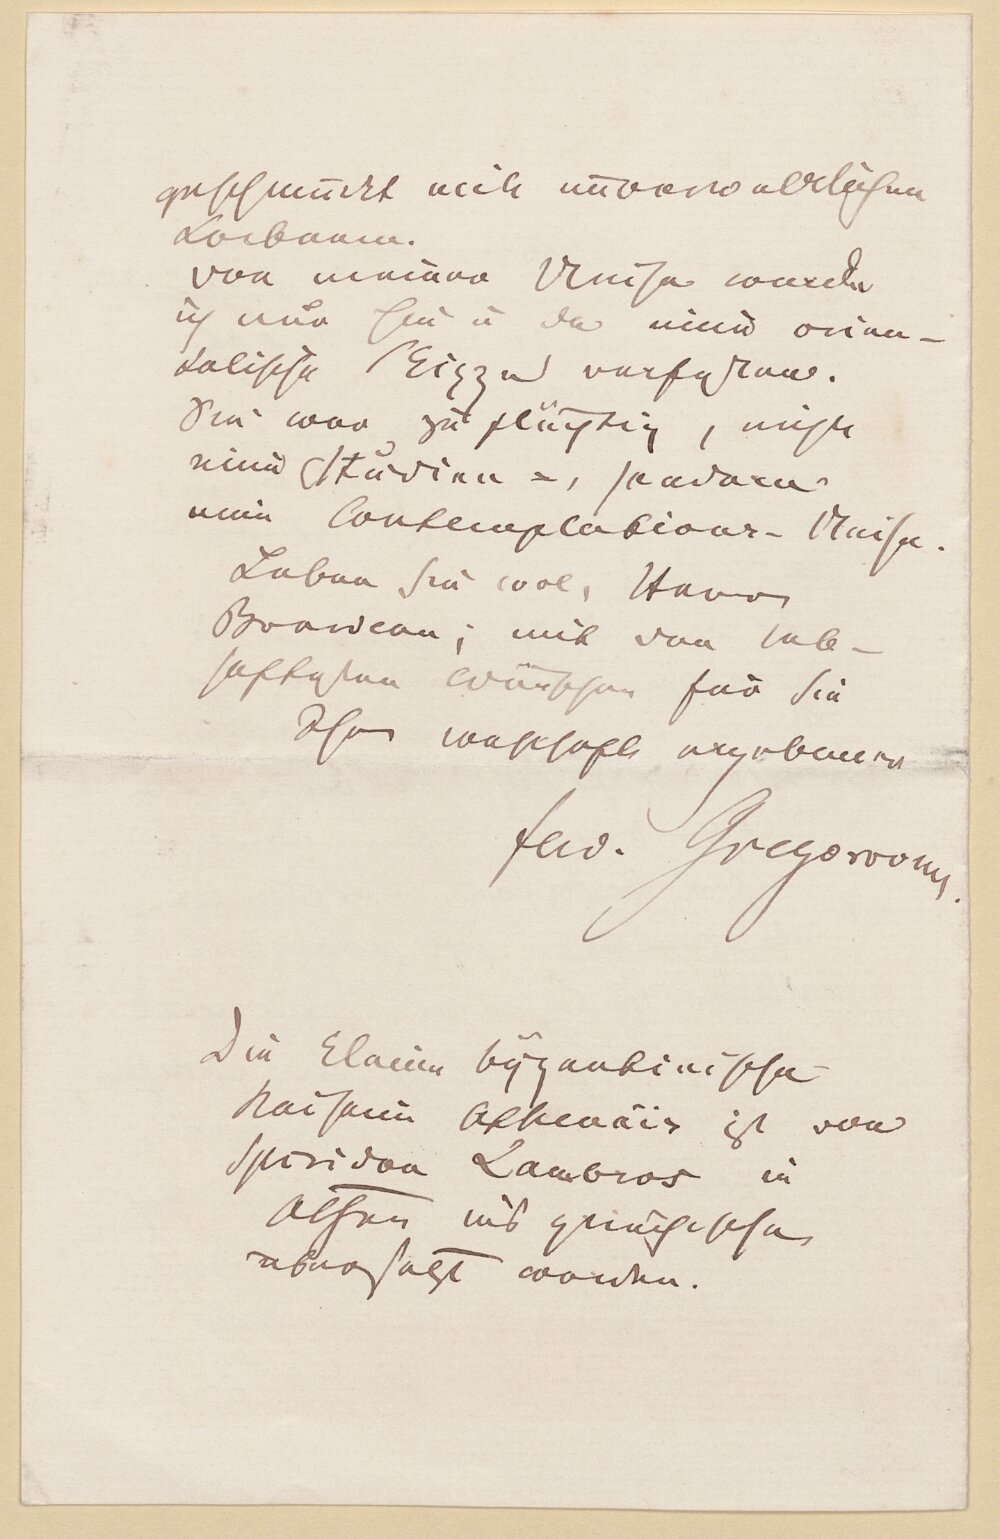 geschmückt mit unverwelklichem
Lorbeern.
Von meiner Reise werde
ich nur hin u da eine orien-
talische Skizze verfassen.
Sie war zu flüchtig, nicht
eine Studien-, sondern
eine Contemplations-Reise.
Leben Sie wol, Herr
; mit den leb-
haftesten Wünschen für Sie
Ihr wahrhaft ergebener
Ferd. Gregorovius.
Die kleine byzantinische
Kaiserin Athenäis ist von
Spiridon Lambros in
Athen ins griechische
übersetzt worden.